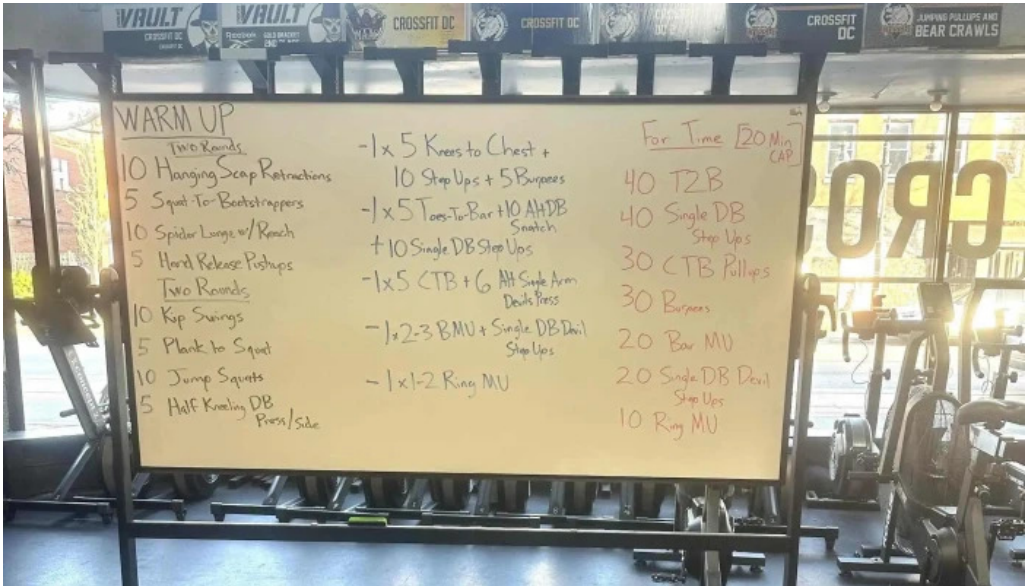 VAULT
CROSSFIT DC
VAULT
Reebok
CROSSFIT DC
CROSSFIT DC
CROSSFIT
DC
JUMPING PULLUPS AND
BEAR CRAWLS
WARM UP
Two Rounds
10 Hanging Scap Retractions
5 Squat-To-Bootstrappers
10 Spider Lunge w/Reach
5 Hand Release Pushups
Two Rounds
10 Kip Swings
5 Plank to Squat
10 Jump Squats
5 Half Kneeling DB
Press/Side
-1x5 Knees to Chest +
10 Step Ups + 5 Burpees
-1x5 Toes-To-Bar +10 Alt DB
Snatch
+10 Single DB Step Ups
-1x5 CTB + 6 Alt Single Arm
Devils Press
-1x2-3 BMU + Single DB Devil
Step Ups
-1x1-2 Ring MU
For Time [20 Min
CAP]
40 T2B
40 Single DB
Step Ups
30 CTB Pullups
30 Burpees
20 Bar MU
20 Single DB Devil
Step Ups
10 Ring MU
GRO